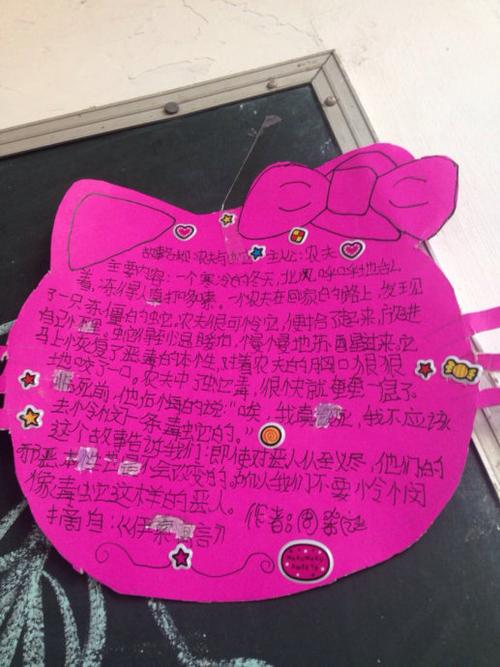 故事名称:农夫与蛇 主人公:农夫
主要内容:一个寒冷的冬天,北风呼呼地刮
着,冻得人直打哆嗦。一个农夫在回家的路上,发现
了一只冻僵的蛇。农夫很可怜它,便拾了起来,放进
自己怀里。蛇得到温暖后,慢慢地苏醒过来,它
马上恢复了恶毒的本性,对着农夫的胸口狠狠
地咬了一口。农夫中了蛇毒,很快就奄奄一息了。
临死前,他后悔的说:“唉,我真该死,我不应该
去怜惜一条毒蛇的。”
这个故事告诉我们:即使对恶人仁至义尽,他们的
邪恶本性也是不会改变的。所以我们不要怜悯
像毒蛇这样的恶人。
摘自:《伊索寓言》 作者:周